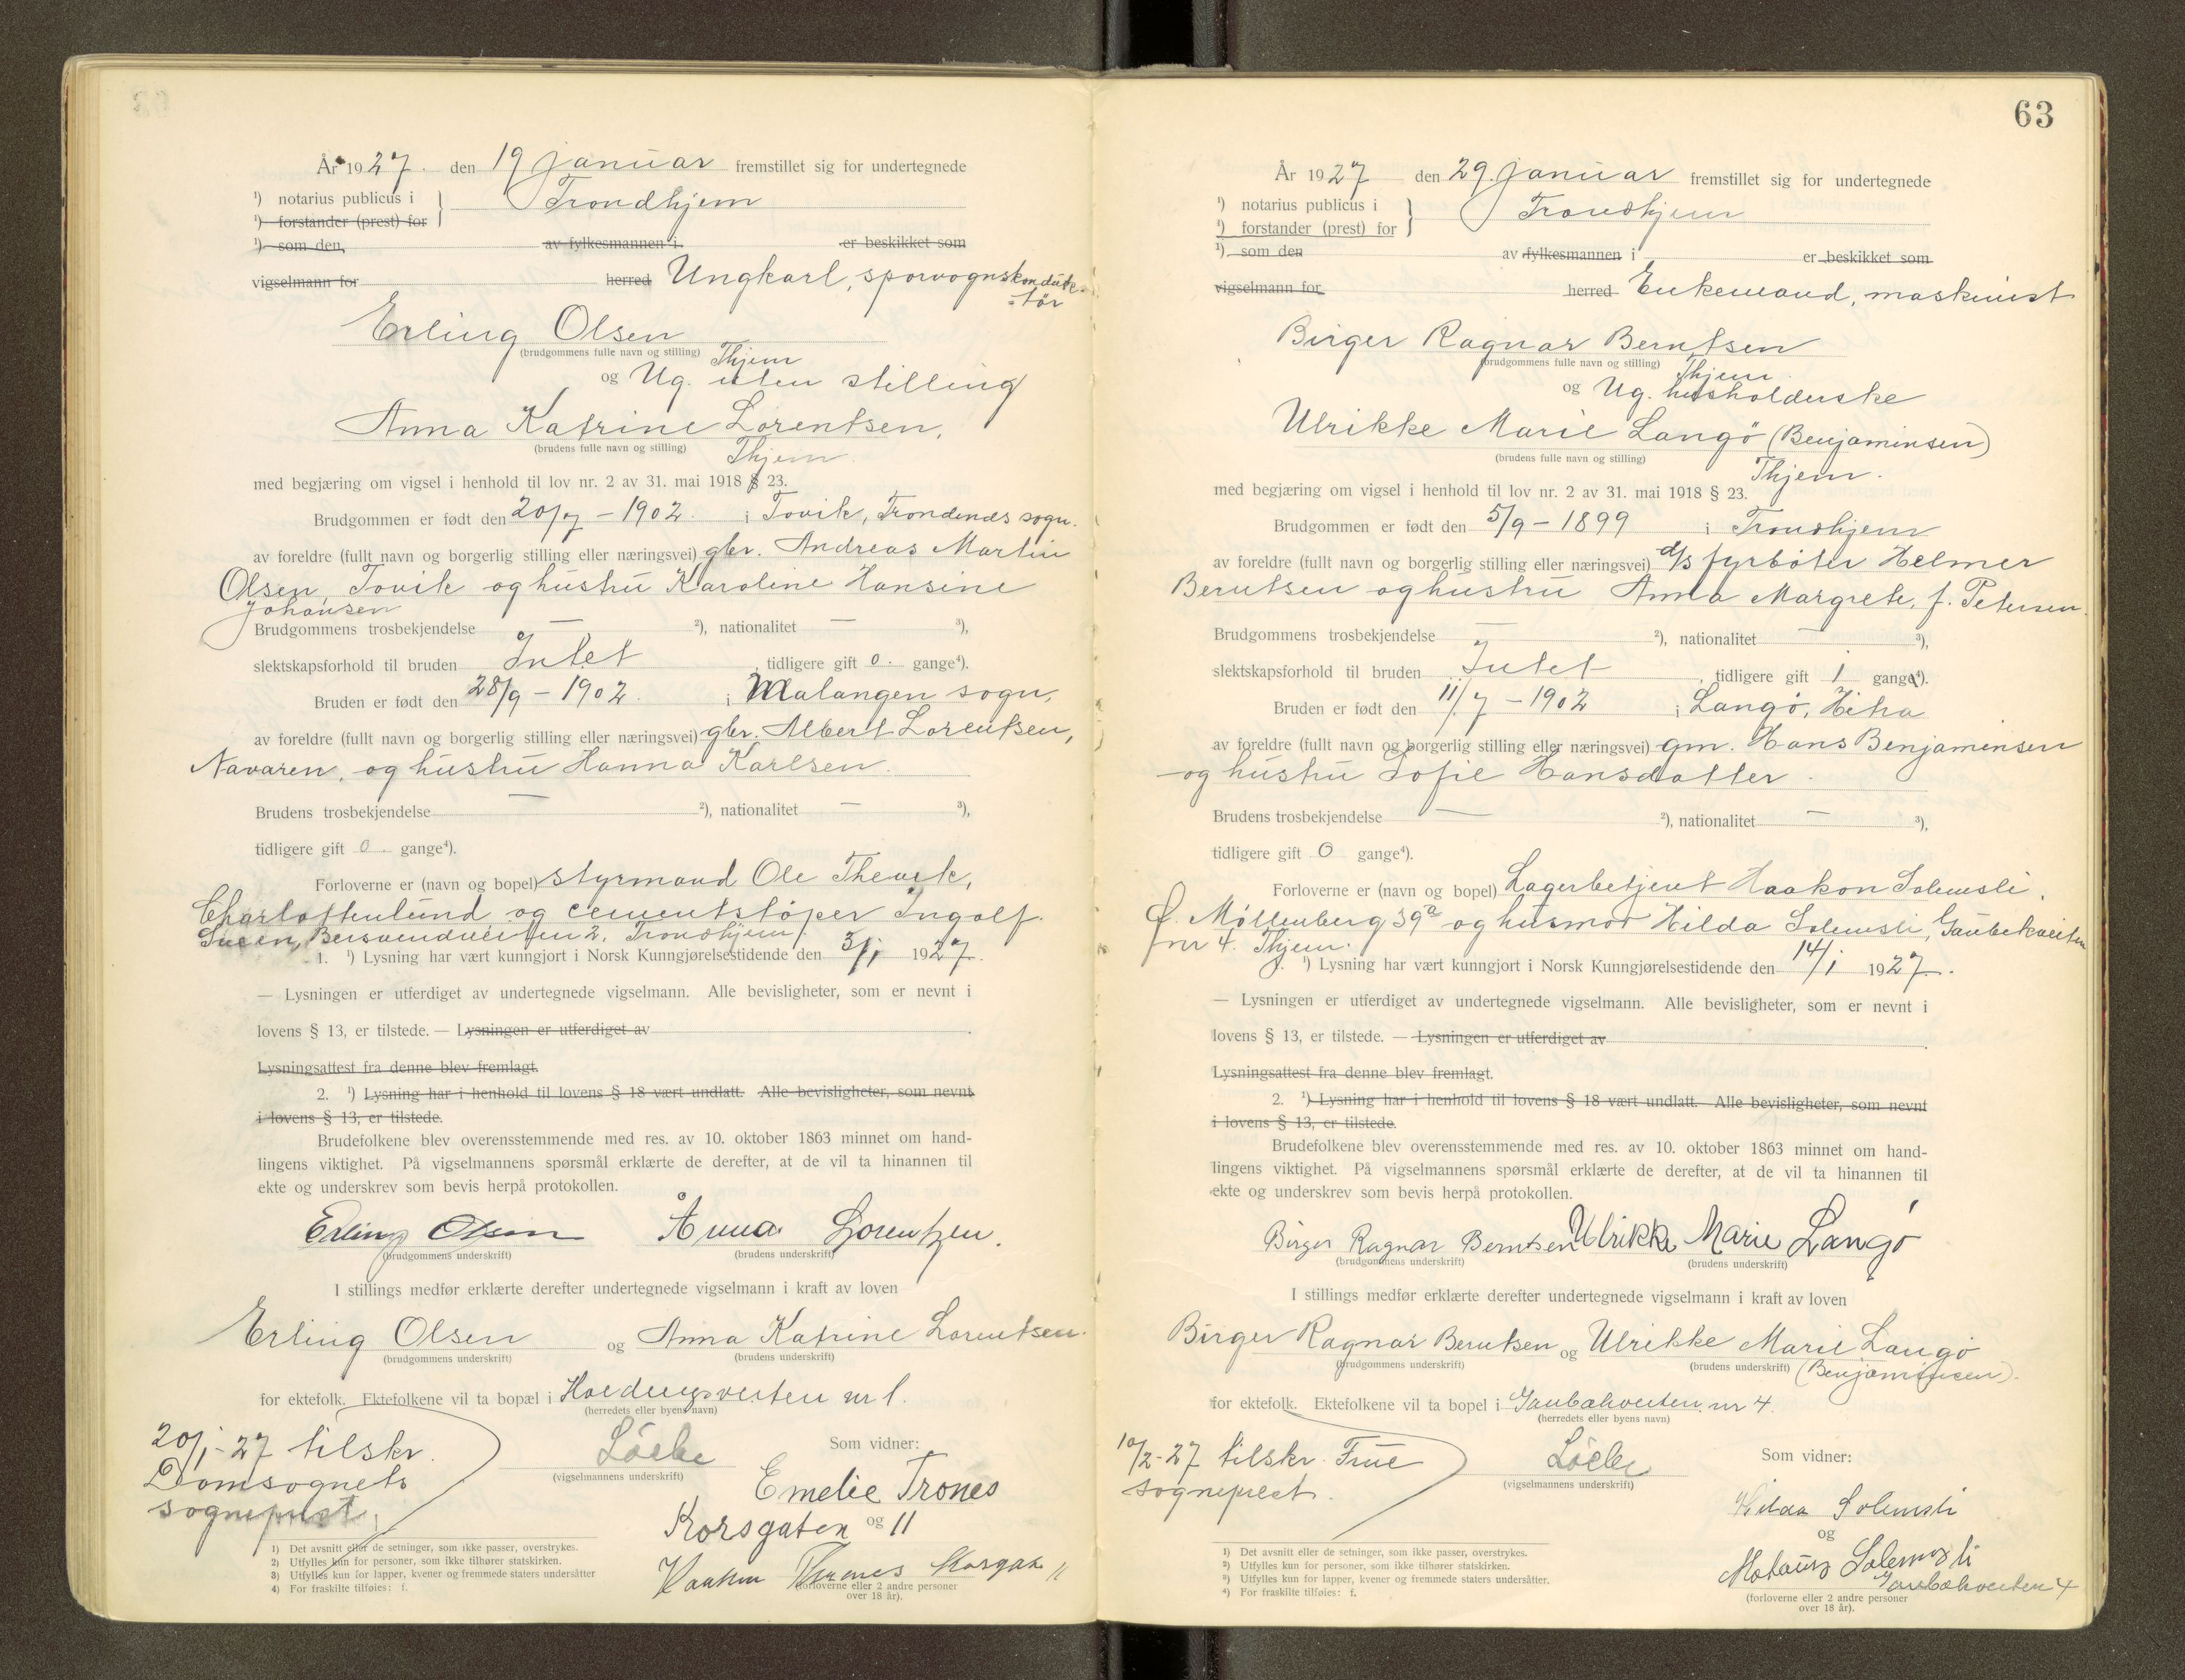 År 1927. den 19 januar fremstillet sig for undertegnede
¹) notarius publicus i } Trondhjem
¹) forstander (prest) for
¹) som den, av fylkesmannen i er beskikket som
vigselmann for herred Ungkarl, sporvognskonduk-
=tør
Erling Olsen
(brudgommens fulle navn og stilling) Thjem
og Ug. uten stilling
Anna Katrine Lorentsen,
(brudens fulle navn og stilling) Thjem.
med begjæring om vigsel i henhold til lov nr. 2 av 31. mai 1918 § 23.
Brudgommen er født den 20/7 - 1902. i Tovik, Trondenes sogn.
av foreldre (fullt navn og borgerlig stilling eller næringsvei) gbr. Andreas Martin
Olsen, Tovik og hustru Karoline Hansine
Johansen
Brudgommens trosbekjendelse — ²), nationalitet — ³),
slektskapsforhold til bruden Intet, tidligere gift 0. gange⁴).
Bruden er født den 28/9 - 1902. i Malangen sogn,
av foreldre (fullt navn og borgerlig stilling eller næringsvei) gbr. Albert Lorentsen,
Navaren, og hustru Hanna Karlsen.
Brudens trosbekjendelse — ²), nationalitet — ³),
tidligere gift 0. gange⁴).
Forloverne er (navn og bopel) styrmand Ole
Charlottenlund og cementstøper Ingolf
2, Trondhjem
1. ¹) Lysning har vært kunngjort i Norsk Kunngjørelsestidende den 3/1 1927.
— Lysningen er utferdiget av undertegnede vigselmann. Alle bevisligheter, som er nevnt i
lovens § 13, er tilstede. — Lysningen er utferdiget av .
Lysningsattest fra denne blev fremlagt.
2. ¹) Lysning har i henhold til lovens § 18 vært undlatt. Alle bevisligheter, som nevnt
i lovens § 13, er tilstede.
Brudefolkene blev overensstemmende med res. av 10. oktober 1863 minnet om hand-
lingens viktighet. På vigselmannens spørsmål erklærte de derefter, at de vil ta hinannen til
ekte og underskrev som bevis herpå protokollen.
Erling Olsen Anna Lorentzen.
(brudgommens underskrift) (brudens underskrift)
I stillings medfør erklærte derefter undertegnede vigselmann i kraft av loven
Erling Olsen og Anna Katrine Lorentsen.
(brudgommens underskrift) (brudens underskrift)
for ektefolk. Ektefolkene vil ta bopæl i nr 1.
(herredets eller byens navn)
20/1-27 tilskr.
Domsognets
sogneprest
(vigselmannens underskrift)
Som vidner:
Emelie Trones
Korsgaten og 11
Haakon Thrones Korsgat 11
(forloverne eller 2 andre personer
over 18 år).
1) Det avsnitt eller de setninger, som ikke passer, overstrykes.
2) Utfylles kun for personer, som ikke tilhører statskirken.
3) Utfylles kun for lapper, kvener og fremmede staters undersåtter
4) For fraskilte tilføies: f.
63
År 1927 den 29. januar fremstillet sig for undertegnede
¹) notarius publicus i } Trondhjem
¹) forstander (prest) for
¹) som den av fylkesmannen i er beskikket som
vigselmann for herred Enkemand, maskinist
Birger Ragnar Berntsen
(brudgommens fulle navn og stilling) Thjem.
og Ug. husholderske
Ulrikke Marie Langö (Benjaminsen)
(brudens fulle navn og stilling) Thjem.
med begjæring om vigsel i henhold til lov nr. 2 av 31. mai 1918 § 23.
Brudgommen er født den 5/9 - 1899 i Trondhjem
av foreldre (fullt navn og borgerlig stilling eller næringsvei) d/s fyrbøter Helmer
Berntsen og hustru Anna Margrete, f. Petersen.
Brudgommens trosbekjendelse — ²), nationalitet — ³),
slektskapsforhold til bruden Intet, tidligere gift 1 gange⁴).
Bruden er født den 11/7 - 1902 i Langö, Hitra
av foreldre (fullt navn og borgerlig stilling eller næringsvei) gm. Hans Benjaminsen
og hustru Sofie Hansdatter.
Brudens trosbekjendelse — ²), nationalitet — ³),
tidligere gift 0 gange⁴).
Forloverne er (navn og bopel) Lagerbetjent Haakon Solemsli,
Ø. Møllenberg 39ª og husmor Hilda Solemsli, Gaubekveiten
nr 4. Thjem.
1. ¹) Lysning har vært kunngjort i Norsk Kunngjørelsestidende den 14/1 1927.
— Lysningen er utferdiget av undertegnede vigselmann. Alle bevisligheter, som er nevnt i
lovens § 13, er tilstede. — Lysningen er utferdiget av .
Lysningsattest fra denne blev fremlagt.
2. ¹) Lysning har i henhold til lovens § 18 vært undlatt. Alle bevisligheter, som nevnt
i lovens § 13, er tilstede.
Brudefolkene blev overensstemmende med res. av 10. oktober 1863 minnet om hand-
lingens viktighet. På vigselmannens spørsmål erklærte de derefter, at de vil ta hinannen til
ekte og underskrev som bevis herpå protokollen.
Birger Ragnar Berntsen Ulrikke Marie Langö
(brudgommens underskrift) (brudens underskrift)
I stillings medfør erklærte derefter undertegnede vigselmann i kraft av loven
Birger Ragnar Berntsen og Ulrikke Marie Langö
(brudgommens underskrift) (brudens underskrift) (Benjaminsen).
for ektefolk. Ektefolkene vil ta bopel i Gaubækveiten nr 4.
(herredets eller byens navn)
10/2-27 tilskr. Frue
sogneprest.
(vigselmannens underskrift)
Som vidner:
Hilda Solemsli
og
Solemsli
Gaubækveiten 4
(forloverne eller 2 andre personer
over 18 år).
1) Det avsnitt eller de setninger, som ikke passer, overstrykes.
2) Utfylles kun for personer, som ikke tilhører statskirken.
3) Utfylles kun for lapper, kvener og fremmede staters undersåtter.
4) For fraskilte tilføies: f.